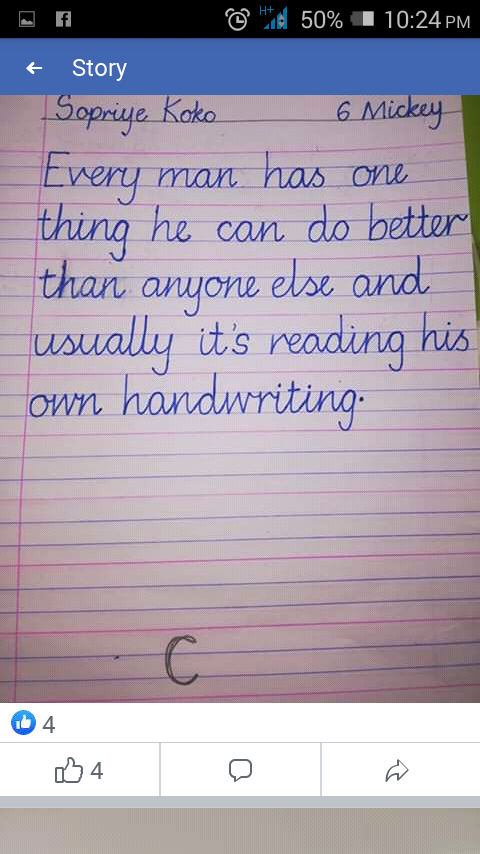 H+ 50% 10:24 PM
Story
Sopriye Koko 6 Mickey
Every man has one
thing he can do better
than anyone else and
usually it's reading his
own handwriting.
C
4
4